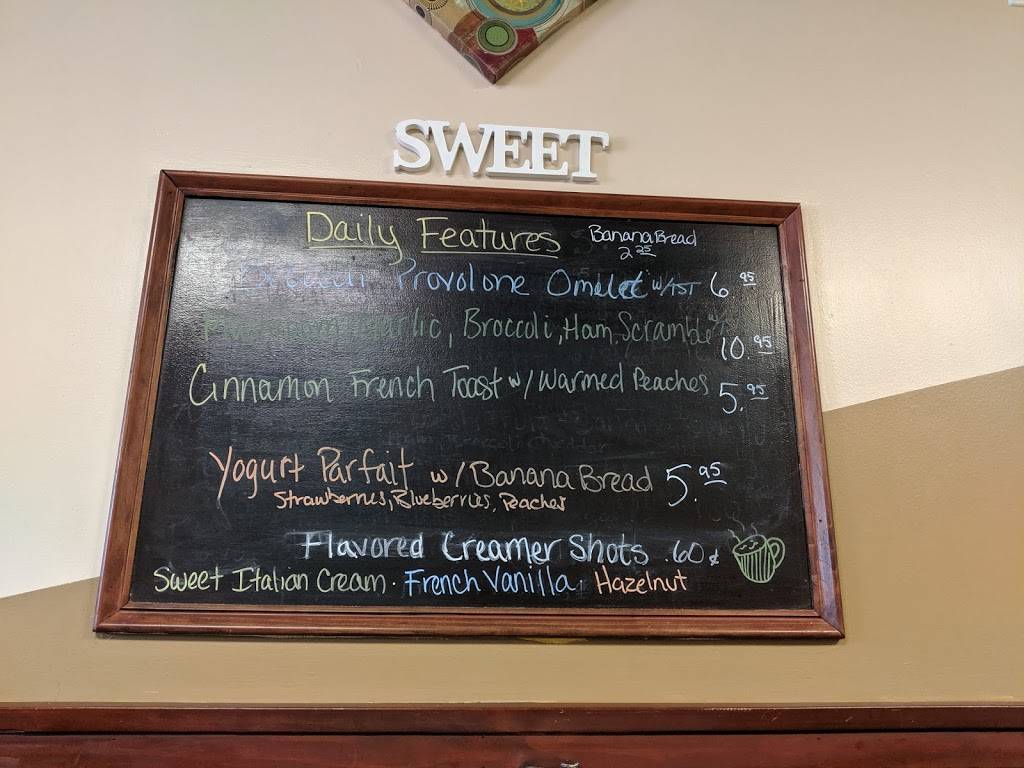 SWEET
Daily Features
Banana Bread
2 25
Provolone Omelet w/TST 6.95
Garlic, Broccoli, Ham, Scramble
10.95
Cinnamon French Toast w/ Warmed Peaches 5.95
Yogurt Parfait w/ Banana Bread 5.95
Strawberries, Blueberries, Peaches
Flavored Creamer Shots .60¢
Sweet Italian Cream · French Vanilla · Hazelnut